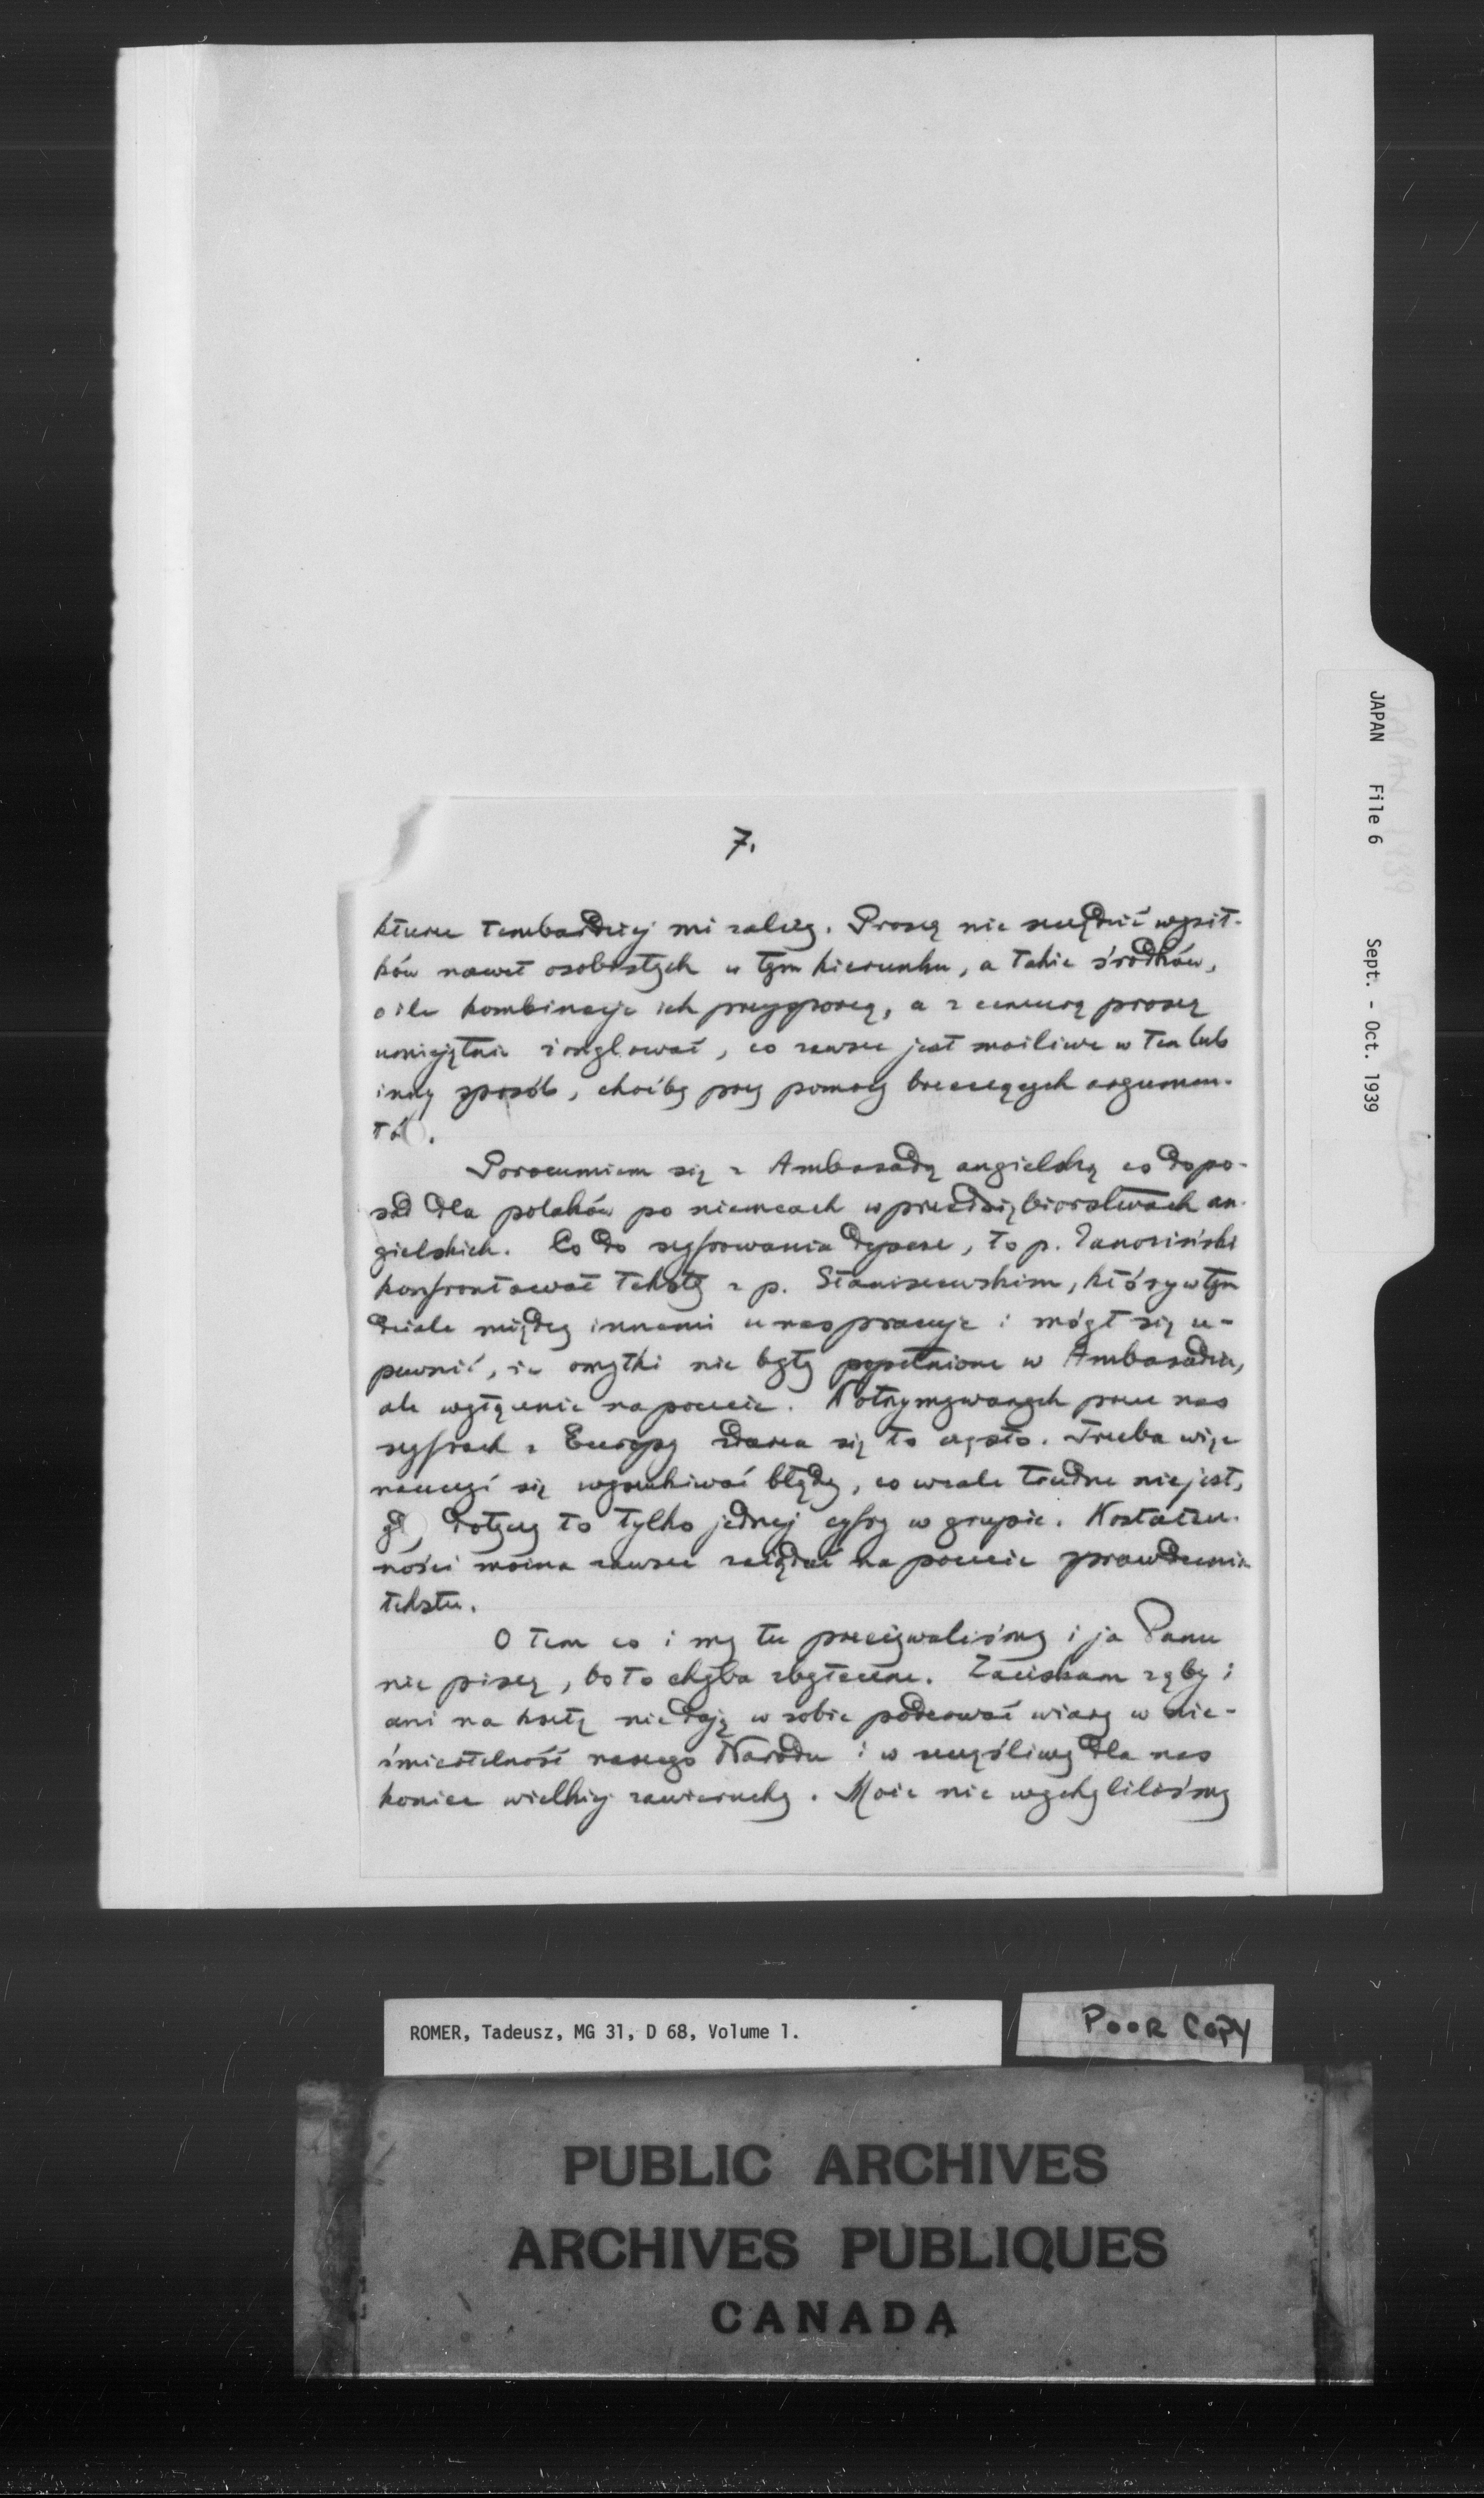 7.
któreu tembardziej mi zależy. Proszę nie szczędzić wysił-
ków nawet osobistych w tym kierunku, a także środków,
o ile kombinacje ich przysporzą, a z cenzurą proszę
umiejętnie żonglować, co zawsze jest możliwe w ten lub
inny sposób, choćby przy pomocy brzęczących argumen-
tó .
Porozumiem się z Ambasadą angielską co do po-
sad dla polaków po niemcach w przedsiębiorstwach an-
gielskich. Co do szyfrowania depesz, to p.
konfrontował teksty z p. Staniszewskim, który w tym
dziale między innemi u nas pracuje i mógł się u-
pewnić, że omyłki nie były popełnione w Ambasadzie,
ale wyłącznie na poczcie. W otrzymywanych przez nas
szyfrach z Europy zdarza się to często. Trzeba więc
nauczyć się wyszukiwać błędy, co wcale trudne nie jest,
gd dotyczy to tylko jednej cyfry w grupie. W ostatecz-
ności można zawsze zażądać na poczcie sprawdzenia
tekstu.
O tem co i my tu przeżywaliśmy i ja Panu
nie piszę, bo to chyba zbyteczne. Zaciskam zęby i
ani na chwilę nie daję w sobie poderwać wiary w nie-
śmiertelność naszego Narodu i w szczęśliwy dla nas
koniec wielkiej zawieruchy. Może nie wychyliliśmy
JAPAN File 6 Sept. - Oct. 1939
ROMER, Tadeusz, MG 31, D 68, Volume 1.
POOR COPY
PUBLIC ARCHIVES
ARCHIVES PUBLIQUES
CANADA